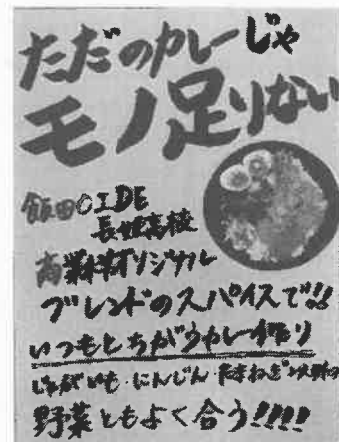 ただのカレーじゃ
モノ足りない
飯田OIDE
長姫高校
商業科オリジナル
ブレンドのスパイスで!!
いつもとちがうカレー作り
じゃがいも・にんじん・たまねぎ以外の
野菜ともよく合う!!!!